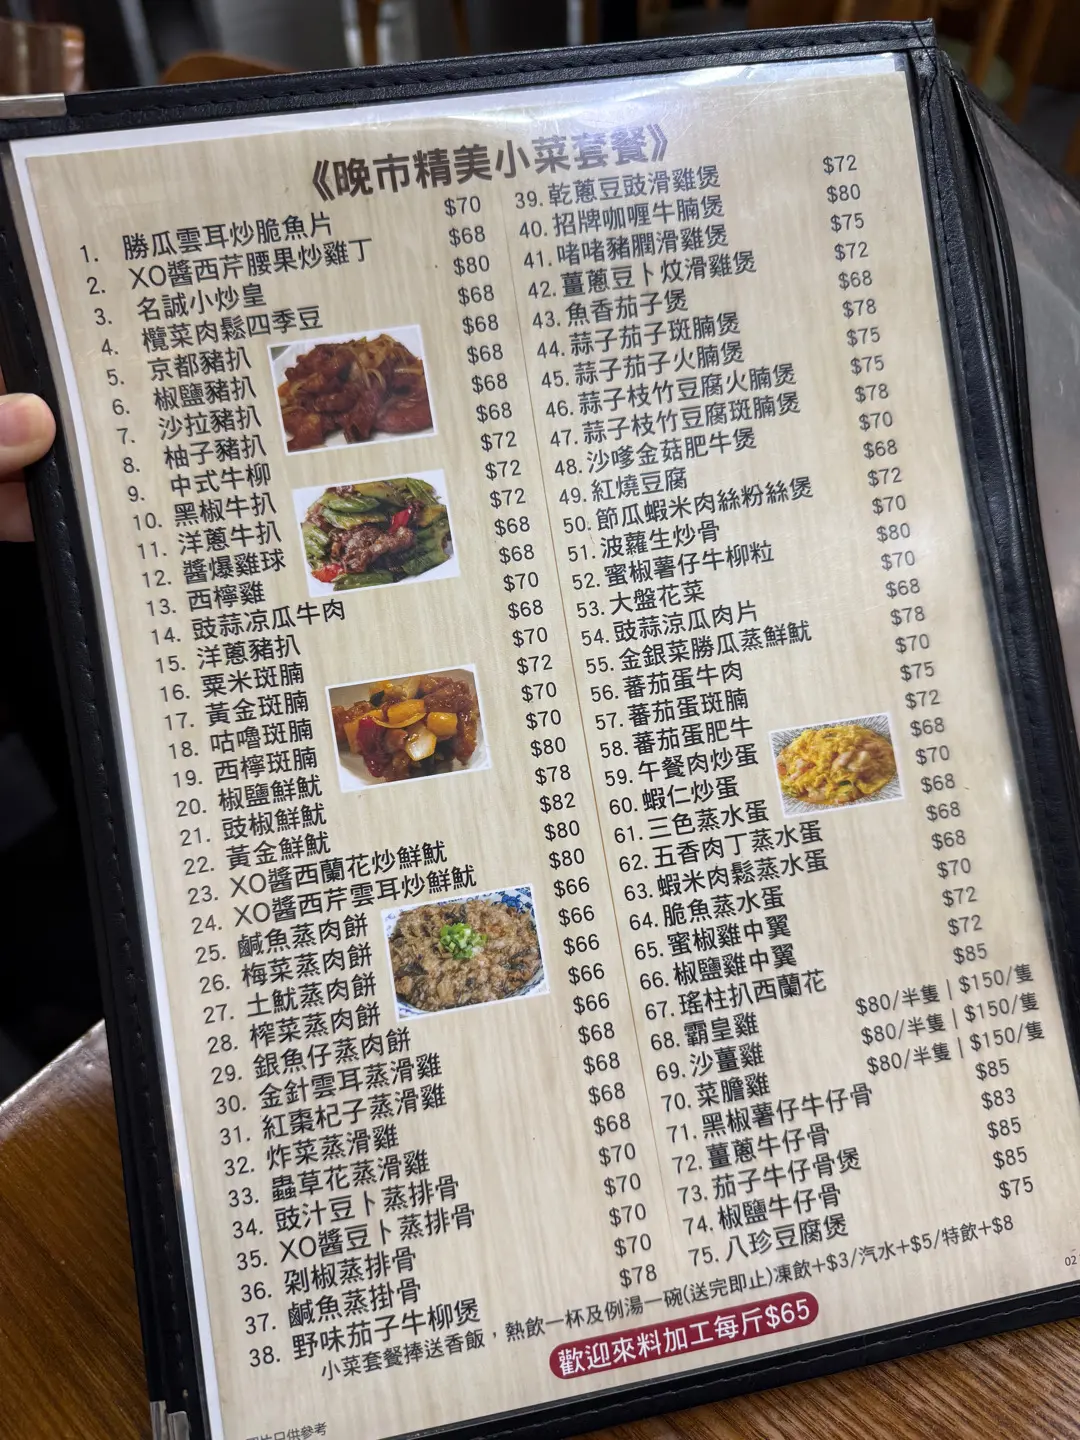 《晚市精美小菜套餐》
1. 勝瓜雲耳炒脆魚片 $70
2. XO醬西芹腰果炒雞丁 $68
3. 名誠小炒皇 $80
4. 欖菜肉鬆四季豆 $68
5. 京都豬扒 $68
6. 椒鹽豬扒 $68
7. 沙拉豬扒 $68
8. 柚子豬扒 $68
9. 中式牛柳 $72
10. 黑椒牛扒 $72
11. 洋蔥牛扒 $72
12. 醬爆雞球 $68
13. 西檸雞 $68
14. 豉蒜涼瓜牛肉 $70
15. 洋蔥豬扒 $68
16. 粟米斑腩 $70
17. 黃金斑腩 $72
18. 咕嚕斑腩 $70
19. 西檸斑腩 $70
20. 椒鹽鮮魷 $80
21. 豉椒鮮魷 $78
22. 黃金鮮魷 $82
23. XO醬西蘭花炒鮮魷 $80
24. XO醬西芹雲耳炒鮮魷 $80
25. 鹹魚蒸肉餅 $66
26. 梅菜蒸肉餅 $66
27. 土魷蒸肉餅 $66
28. 榨菜蒸肉餅 $66
29. 銀魚仔蒸肉餅 $66
30. 金針雲耳蒸滑雞 $68
31. 紅棗杞子蒸滑雞 $68
32. 炸菜蒸滑雞 $68
33. 蟲草花蒸滑雞 $68
34. 豉汁豆卜蒸排骨 $70
35. XO醬豆卜蒸排骨 $70
36. 剁椒蒸排骨 $70
37. 鹹魚蒸掛骨 $70
38. 野味茄子牛柳煲 $78
39. 乾蔥豆豉滑雞煲 $72
40. 招牌咖喱牛腩煲 $80
41. 啫啫豬膶滑雞煲 $75
42. 薑蔥豆卜炆滑雞煲 $72
43. 魚香茄子煲 $68
44. 蒜子茄子斑腩煲 $78
45. 蒜子茄子火腩煲 $75
46. 蒜子枝竹豆腐火腩煲 $75
47. 蒜子枝竹豆腐斑腩煲 $78
48. 沙嗲金菇肥牛煲 $70
49. 紅燒豆腐 $68
50. 節瓜蝦米肉絲粉絲煲 $72
51. 波蘿生炒骨 $70
52. 蜜椒薯仔牛柳粒 $80
53. 大盤花菜 $70
54. 豉蒜涼瓜肉片 $68
55. 金銀菜勝瓜蒸鮮魷 $78
56. 蕃茄蛋牛肉 $70
57. 蕃茄蛋斑腩 $75
58. 蕃茄蛋肥牛 $72
59. 午餐肉炒蛋 $68
60. 蝦仁炒蛋 $70
61. 三色蒸水蛋 $68
62. 五香肉丁蒸水蛋 $68
63. 蝦米肉鬆蒸水蛋 $68
64. 脆魚蒸水蛋 $70
65. 蜜椒雞中翼 $72
66. 椒鹽雞中翼 $72
67. 瑤柱扒西蘭花 $85
68. 霸皇雞 $80/半隻 | $150/隻
69. 沙薑雞 $80/半隻 | $150/隻
70. 菜膽雞 $80/半隻 | $150/隻
71. 黑椒薯仔牛仔骨 $85
72. 薑蔥牛仔骨 $83
73. 茄子牛仔骨煲 $85
74. 椒鹽牛仔骨 $85
75. 八珍豆腐煲 $75
小菜套餐捧送香飯，熱飲一杯及例湯一碗(送完即止)凍飲+$3/汽水+$5/特飲+$8
歡迎來料加工每斤$65
片只供參考
02